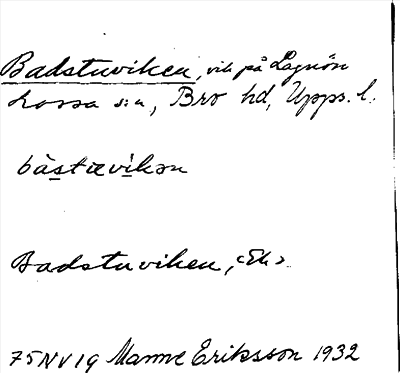 Badstuviken, vik på Lagnön
Lossa sn, Bro hd, Upps. l.
bàstævikən
Badstuviken, <Ek>
75NV19 Manne Eriksson 1932